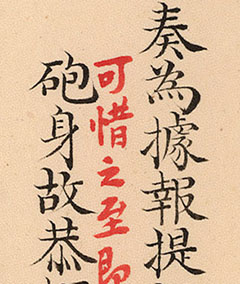 奏為據報提
可惜之至即
砲身故恭